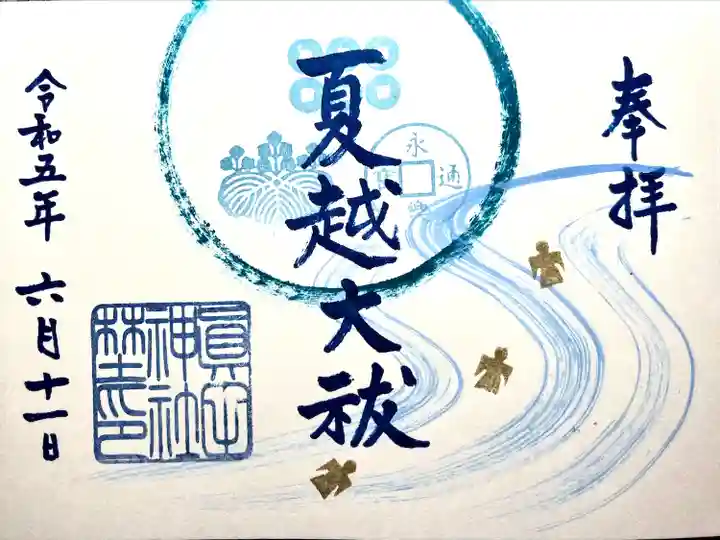 奉拝
夏越大祓
永
通
令和五年 六月十一日
眞田
神社